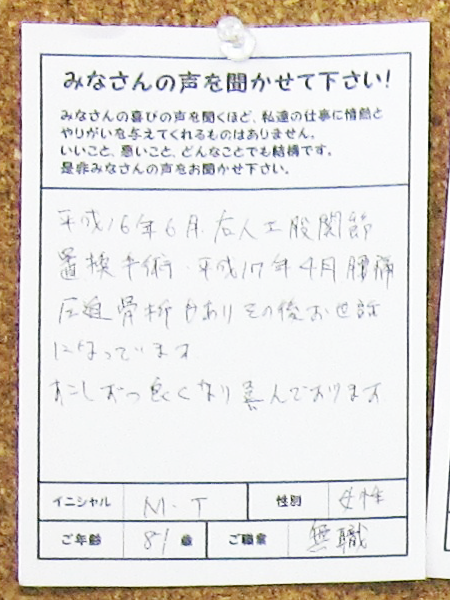 みなさんの声を聞かせて下さい!
みなさんの喜びの声を聞くほど、私達の仕事に情熱と
やりがいを与えてくれるものはありません。
いいこと、悪いこと、どんなことでも結構です。
是非みなさんの声をお聞かせ下さい。
平成16年6月.右人工股関節
置換手術.平成17年4月腰痛
圧迫骨折もありその後お世話
になっています
すこしずつ良くなり喜んでおります
イニシャル M.T 性別 女性
ご年齢 81歳 ご職業 無職